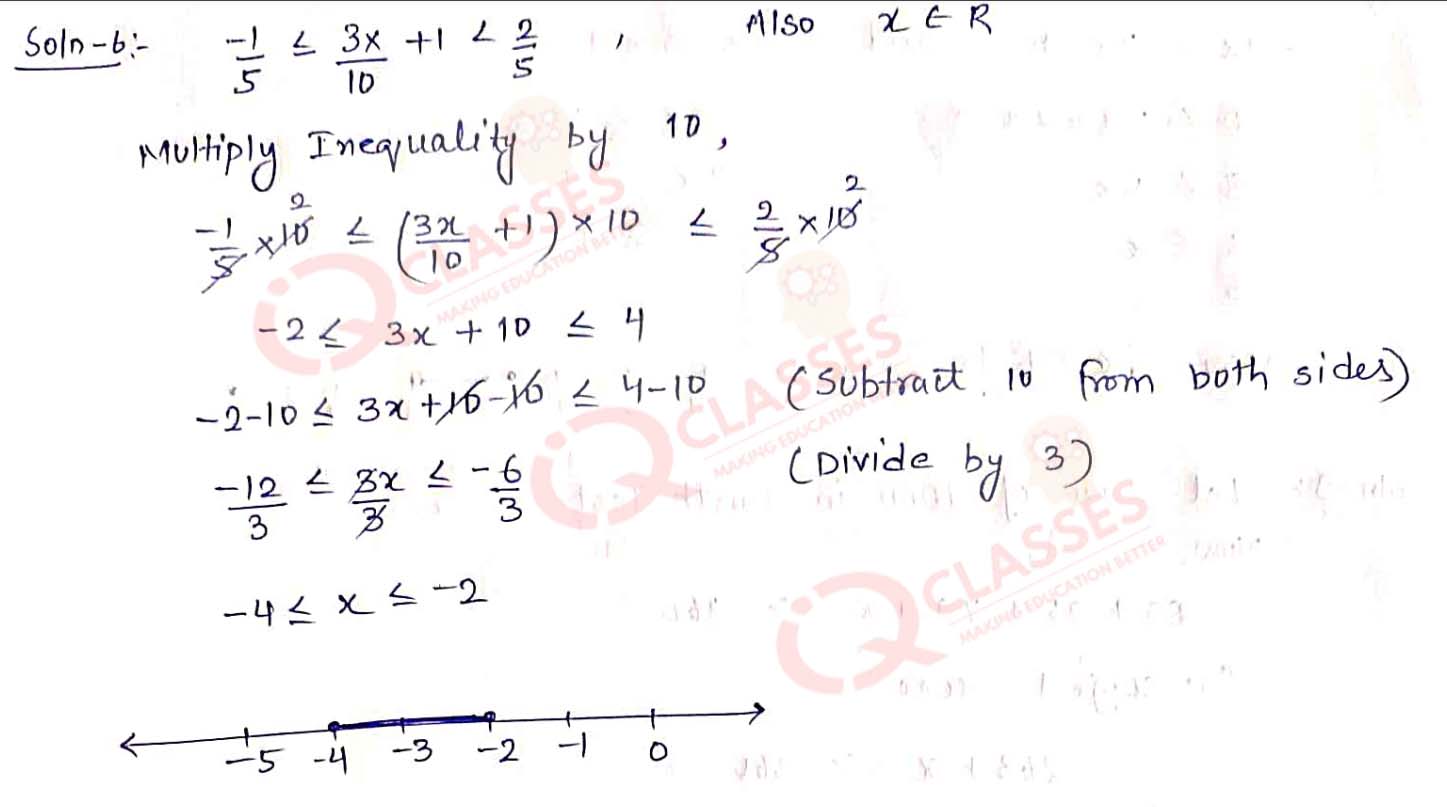 Soln-6:- -1/5 ≤ 3x/10 +1 < 2/5 , Also x ∈ R
Multiply Inequality by 10,
-1/5 ×10 2 ≤ (3x/10 +1) × 10 ≤ 2/5 ×10 2
-2 ≤ 3x + 10 ≤ 4
-2-10 ≤ 3x +10-10 ≤ 4-10 (Subtract 10 from both sides)
-12/3 ≤ 3x/3 ≤ -6/3 (Divide by 3)
-4 ≤ x ≤ -2
-5 -4 -3 -2 -1 0
IQ CLASSES
MAKING EDUCATION BETTER
IQ CLASSES
MAKING EDUCATION BETTER
IQ CLASSES
MAKING EDUCATION BETTER